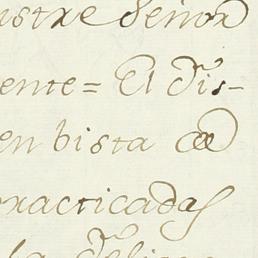 ustre Señor
ente = El Dis-
en bista
practicadas
la